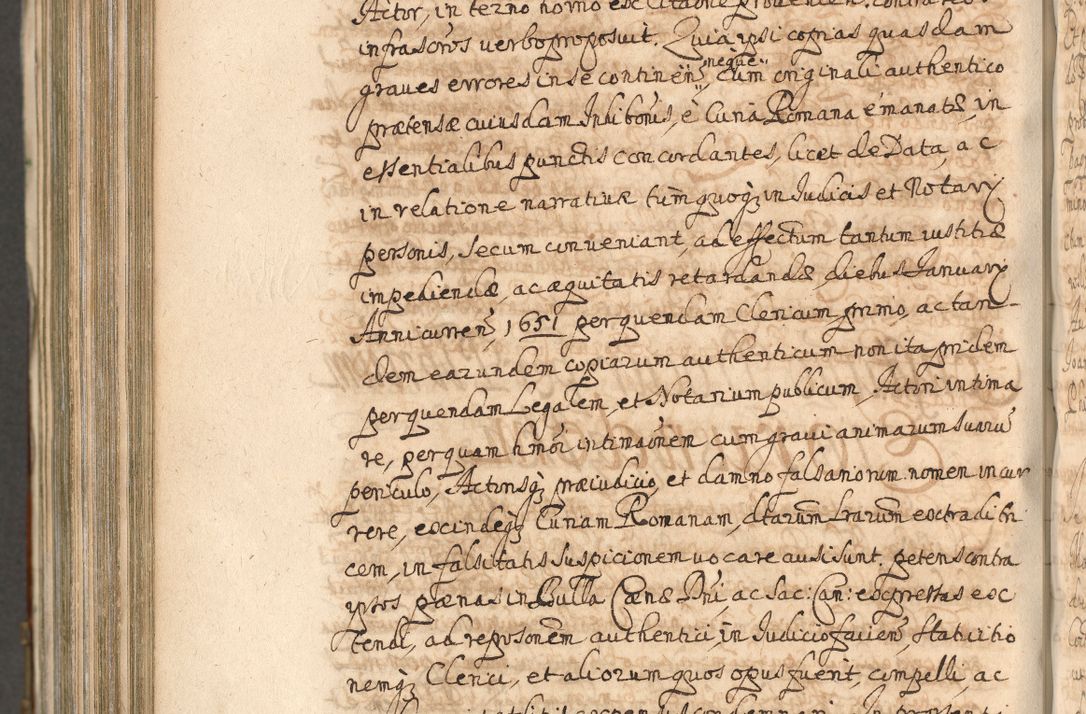 Actor, in termo homo ex Citaone provenien. contra reos
infrascros verbo proposuit. Quia ipsi copias quasdam
graves errores in se continen, neque cum originali authentico
prætensæ cuiusdam Inhibonis, è Curia Romana emanatæ, in
essentialibus punctis concordantes, licet de Data, ac
in relatione narrativæ tum quoq; in Judicis et Notarii
personis, secum conveniant, ad effectum tantum iustitiæ
impediendæ, ac æquitatis retardandæ, diebus Januarii
Anni curren, 1651 per quendam Clericum primo, ac tan-
dem earundem copiarum authenticum non ita pridem
per quendam Legalem, et Notarium publicum, Actori intima
re, per quam hmoi intimaonem cum gravi animarum suaru
periculo, Actorisq; præiudicio, et damno falsariorum nomen incur
rere, exindeq; Curiam Romanam, dtarum Lrarum extraditri
cem, in falsitatis suspicionem vocare ausi sunt. petens contra
iptos pænas in Bulla Cænæ Dni, ac Sac: Can: expressas ex
tendi, ad reposonem authentici in Judicio facien, statuitio
nemq; Clerici, et aliorum quos opus fuerit, compelli, ac